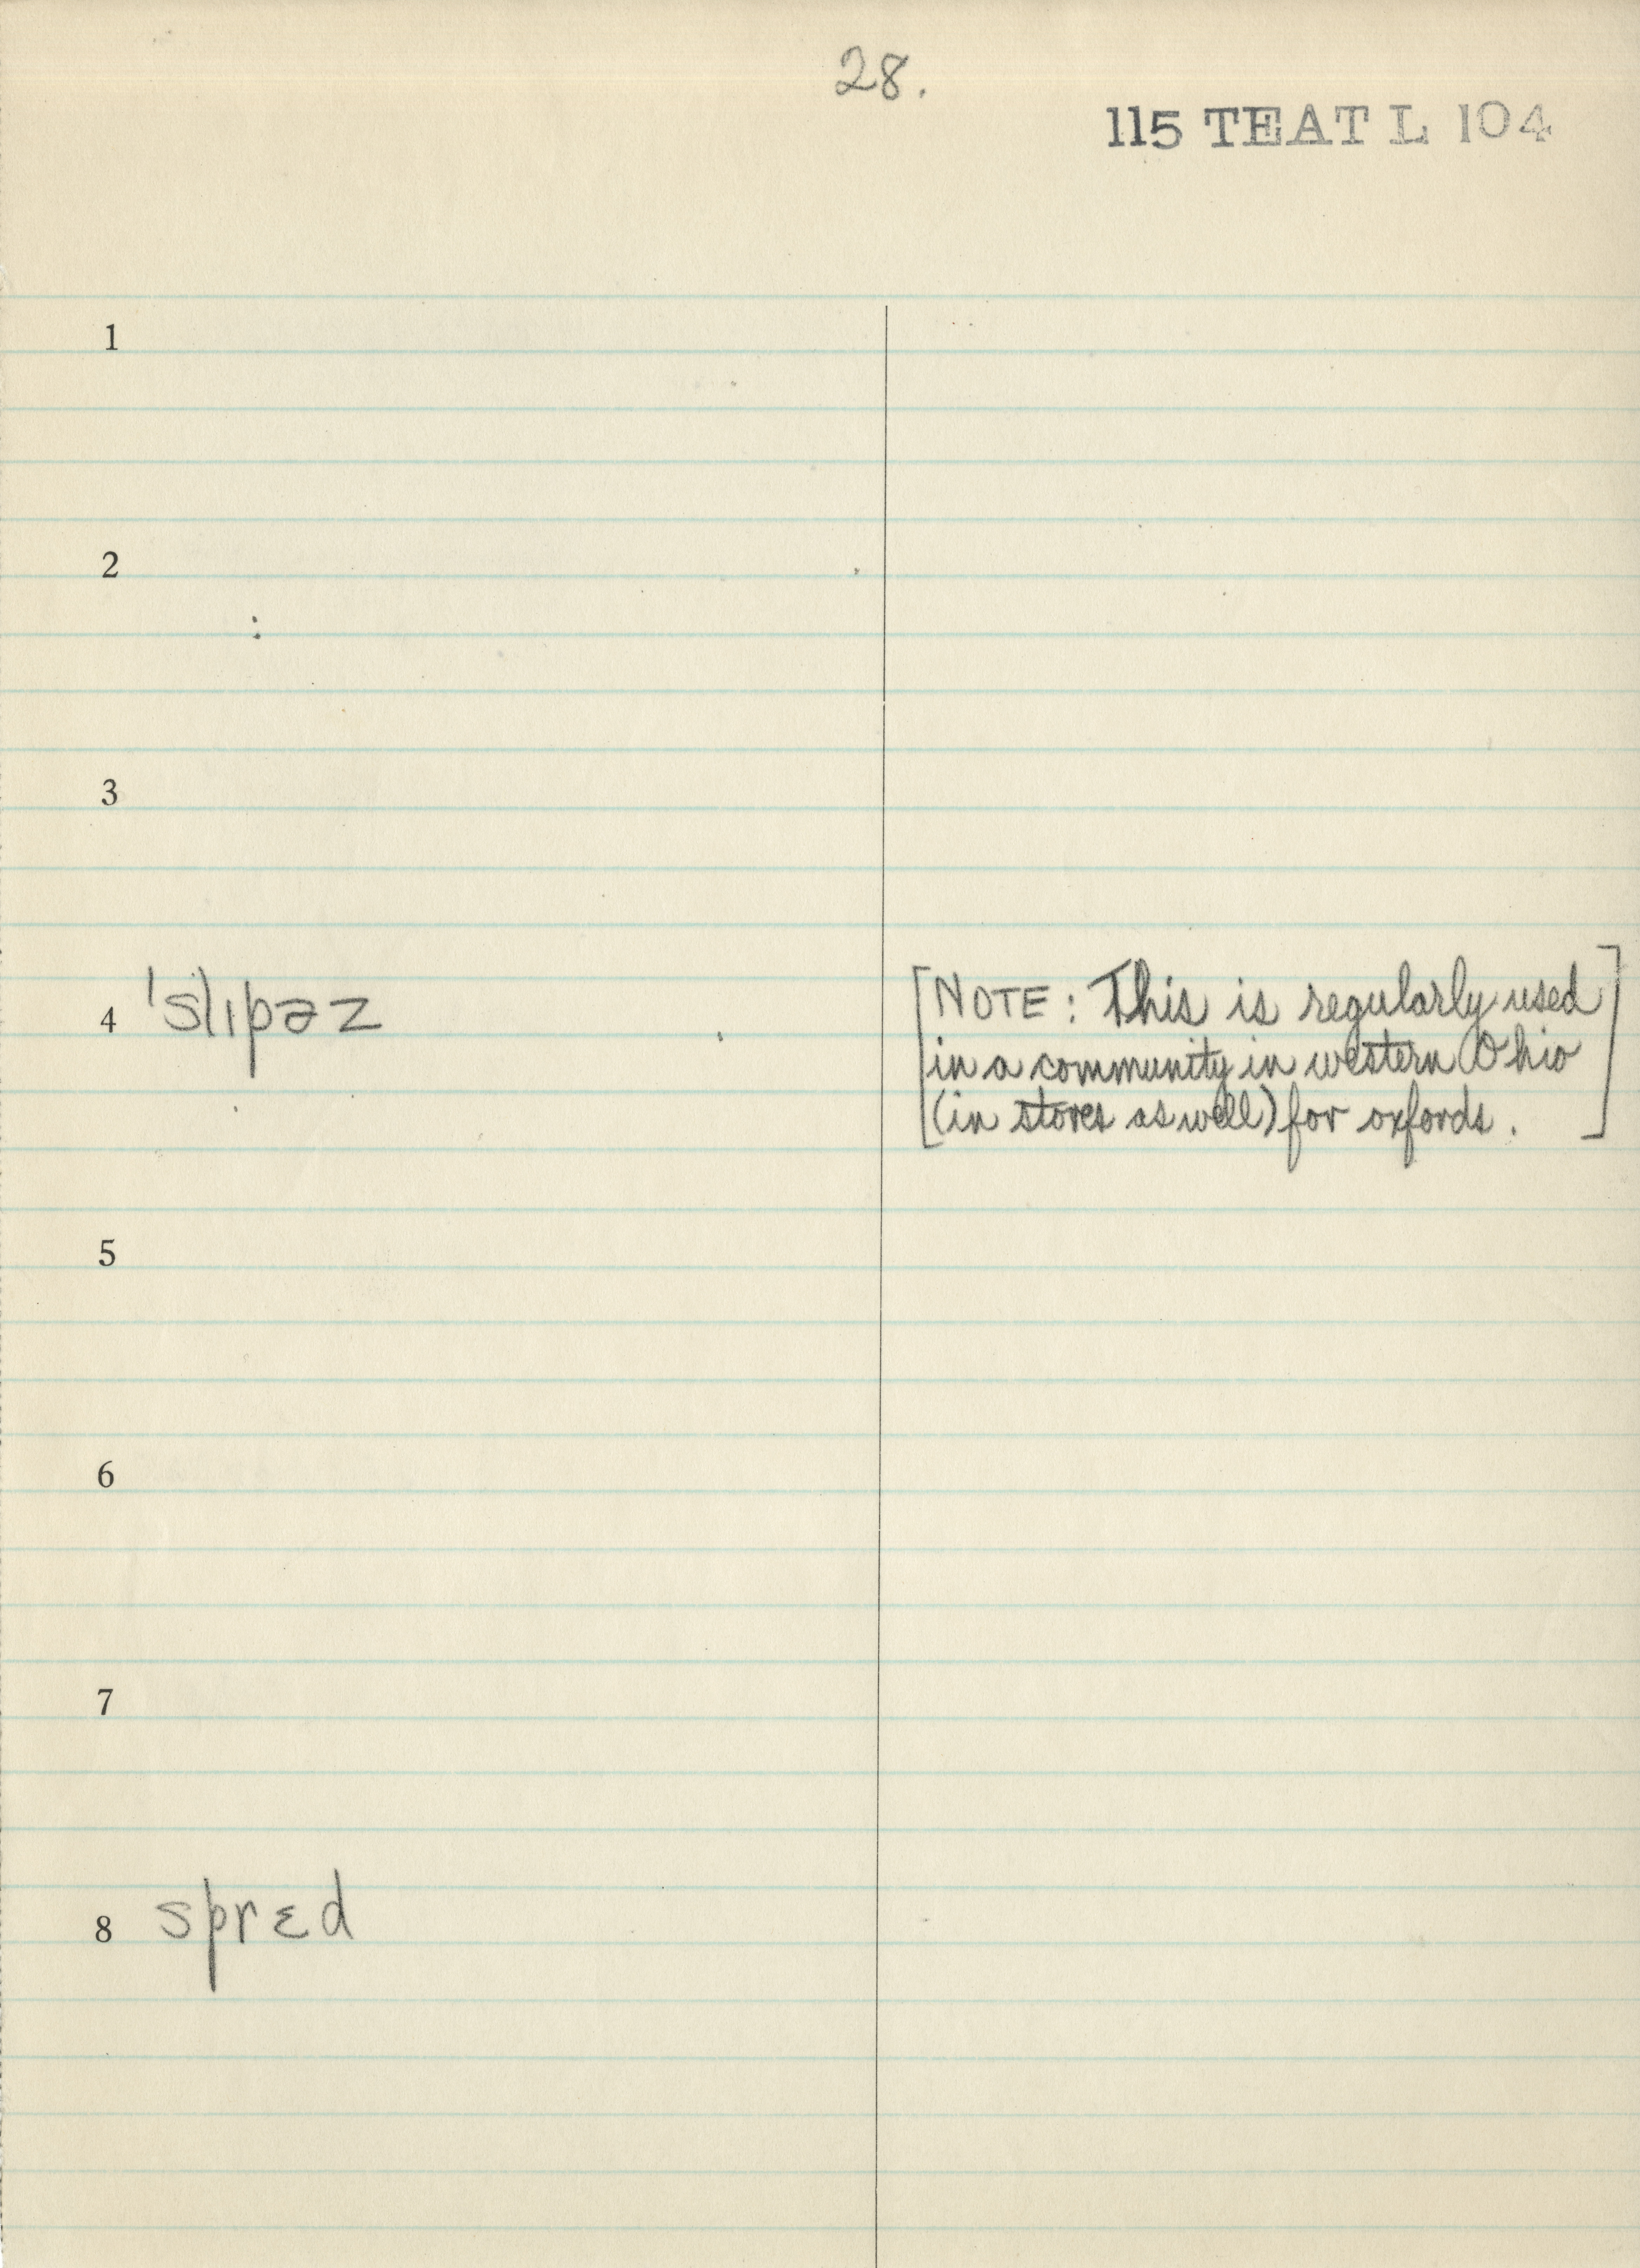 28.
115 TEAT L 104
1
2
3
4 ˈslɪpəz
[NOTE: This is regularly used
in a community in western Ohio
(in stores as well) for oxfords.]
5
6
7
8 sprɛd